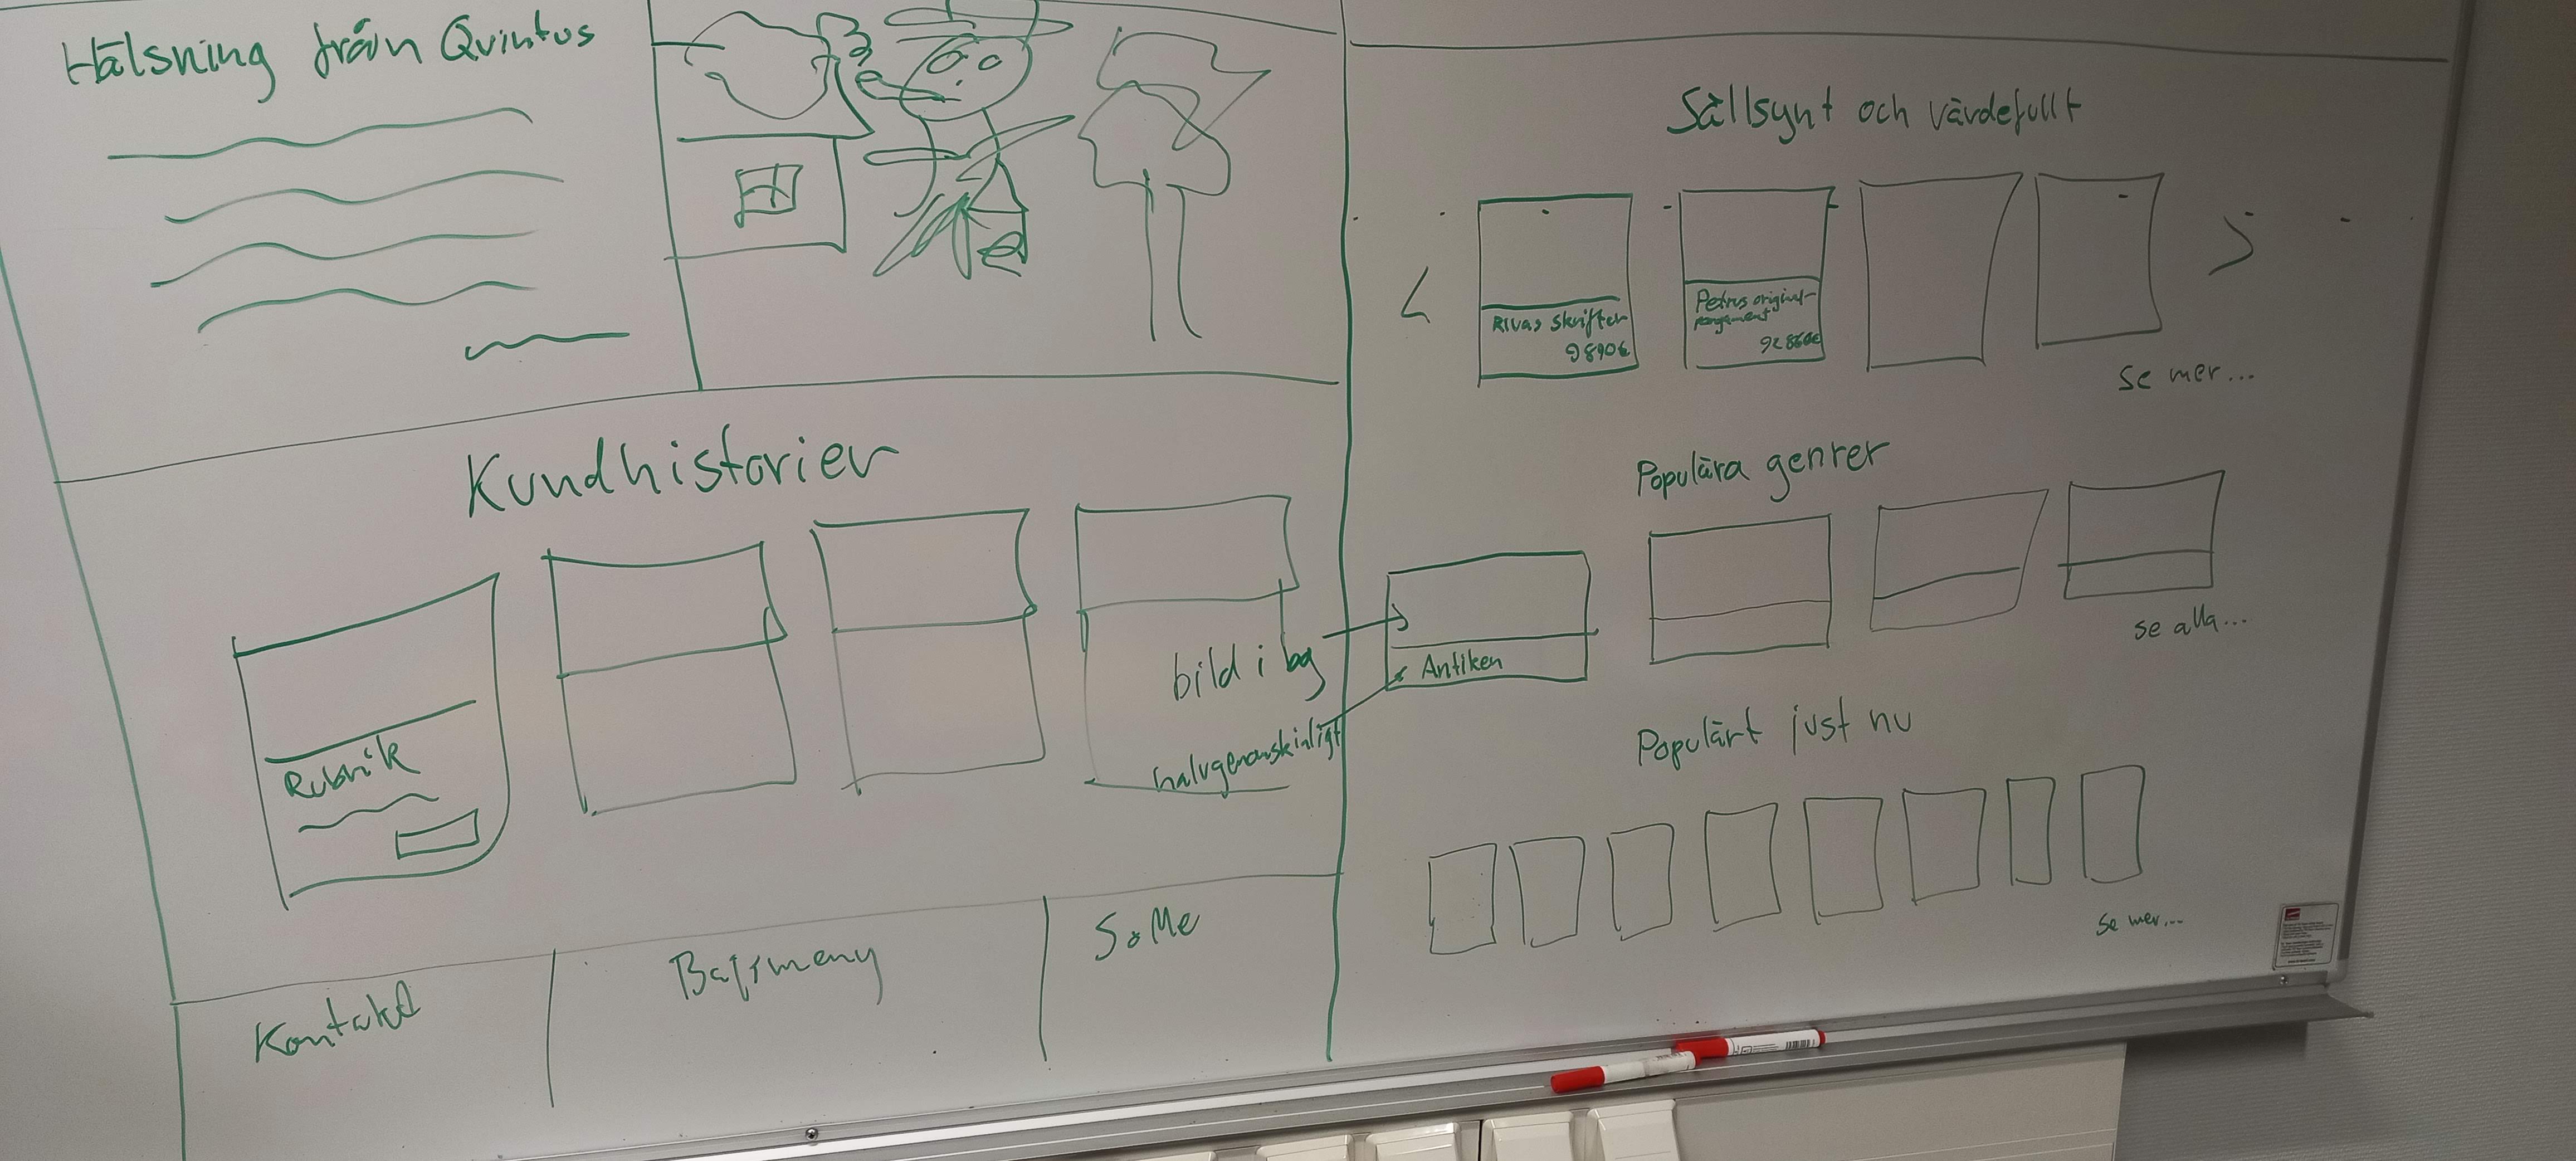 Hälsning från Quintus
Kundhistorier
Rubrik
bild i bg
halvgenomskinligt
Kontakt
Basmeny
SoMe
Sällsynt och värdefullt
Rivas skrifter
9890€
Petrus original-
pergament
92860€
se mer...
Populära genrer
Antiken
se alla...
Populärt just nu
Se mer...